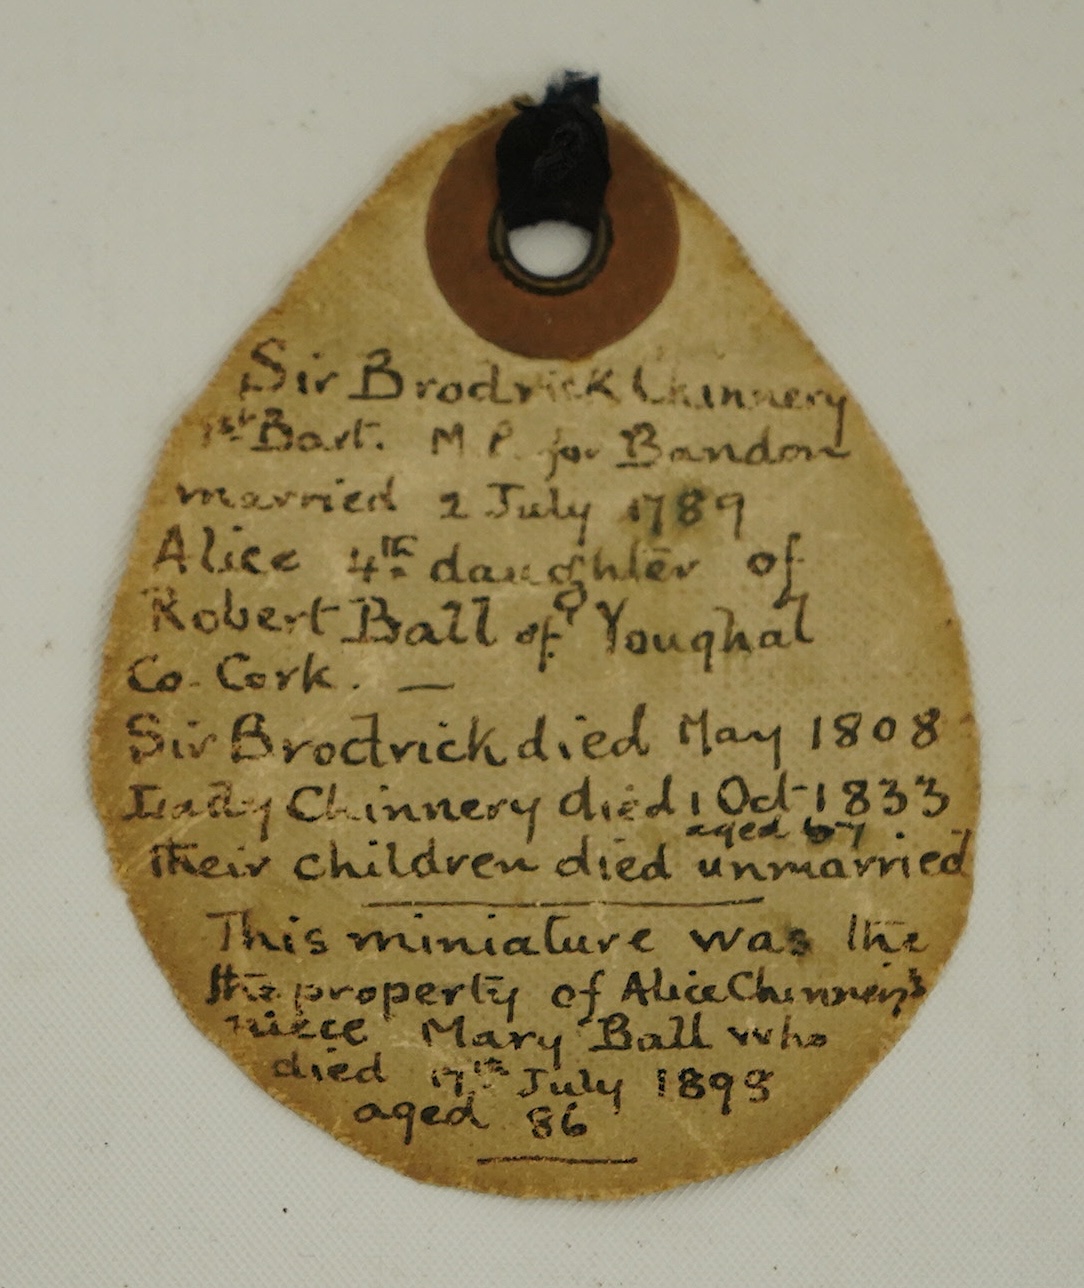 Sir Brodrick Chinnery
1st Bart. M.P. for Bandon
married 2 July 1789
Alice 4th daughter of
Robert Ball of Youghal
Co. Cork. —
Sir Brodrick died May 1808
Lady Chinnery died 1 Oct 1833
aged 67
their children died unmarried
This miniature was the
the property of Alice Chinnery's
niece Mary Ball who
died 17th July 1898
aged 86